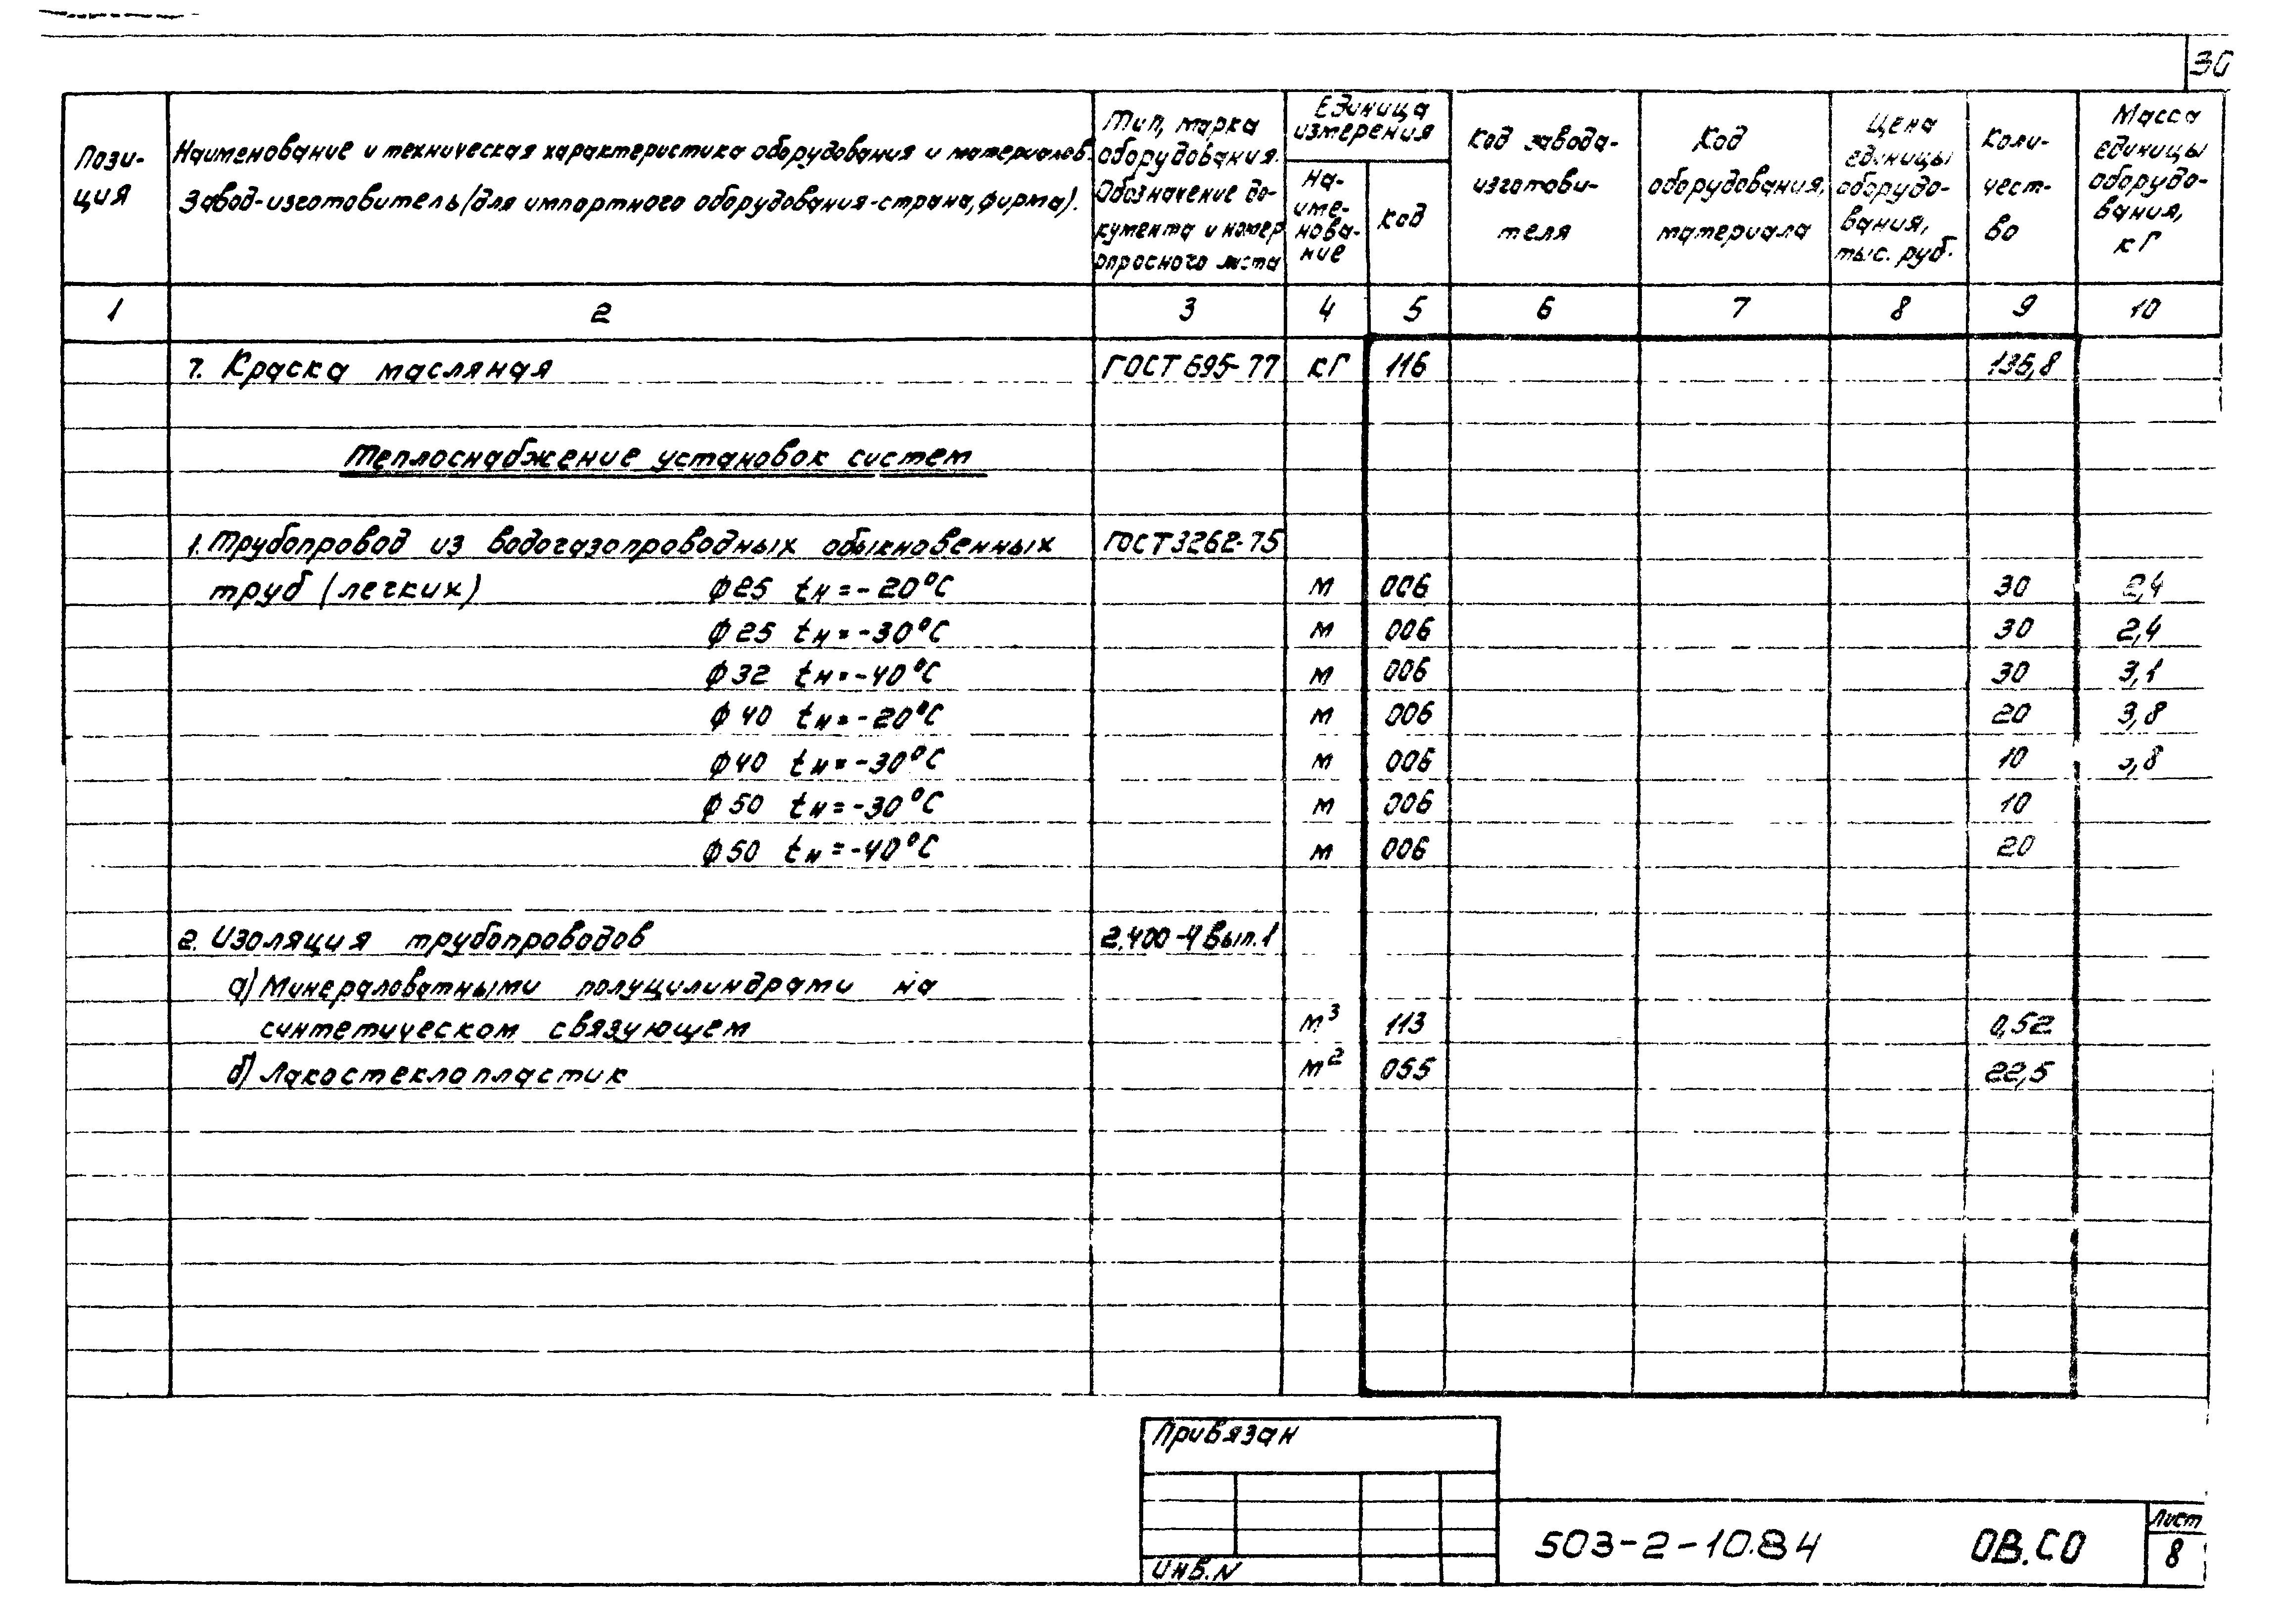 30
Пози-
ция
Наименование и техническая характеристика оборудования и материалов.
Завод-изготовитель (для импортного оборудования-страна, фирма).
Тип, марка
оборудования.
Обозначение до-
кумента и номер
опросного листа
Единица
измерения
На-
име-
нова-
ние
код
Код завода-
изготови-
теля
Код
оборудования,
материала
Цена
единицы
оборудо-
вания,
тыс. руб.
Коли-
чест-
во
Масса
единицы
оборудо-
вания,
кг
1 2 3 4 5 6 7 8 9 10
7. Краска масляная ГОСТ 695-77 кг 116 136,8
Теплоснабжение установок систем
1. Трубопровод из водогазопроводных обыкновенных ГОСТ 3262-75
труб (легких) ф25 tн=-20°С м 006 30 2,4
ф25 tн=-30°С м 006 30 2,4
ф32 tн=-40°С м 006 30 3,1
ф40 tн=-20°С м 006 20 3,8
ф40 tн=-30°С м 006 10 ,8
ф50 tн=-30°С м 006 10
ф50 tн=-40°С м 006 20
2. Изоляция трубопроводов 2.400-4 вып.1
а) Минераловатными полуцилиндрами на
синтетическом связующем м³ 113 0,52
б) Лакостеклопластик м² 055 22,5
Привязан
Инв.N
503-2-10.84 ОВ.СО
Лист
8